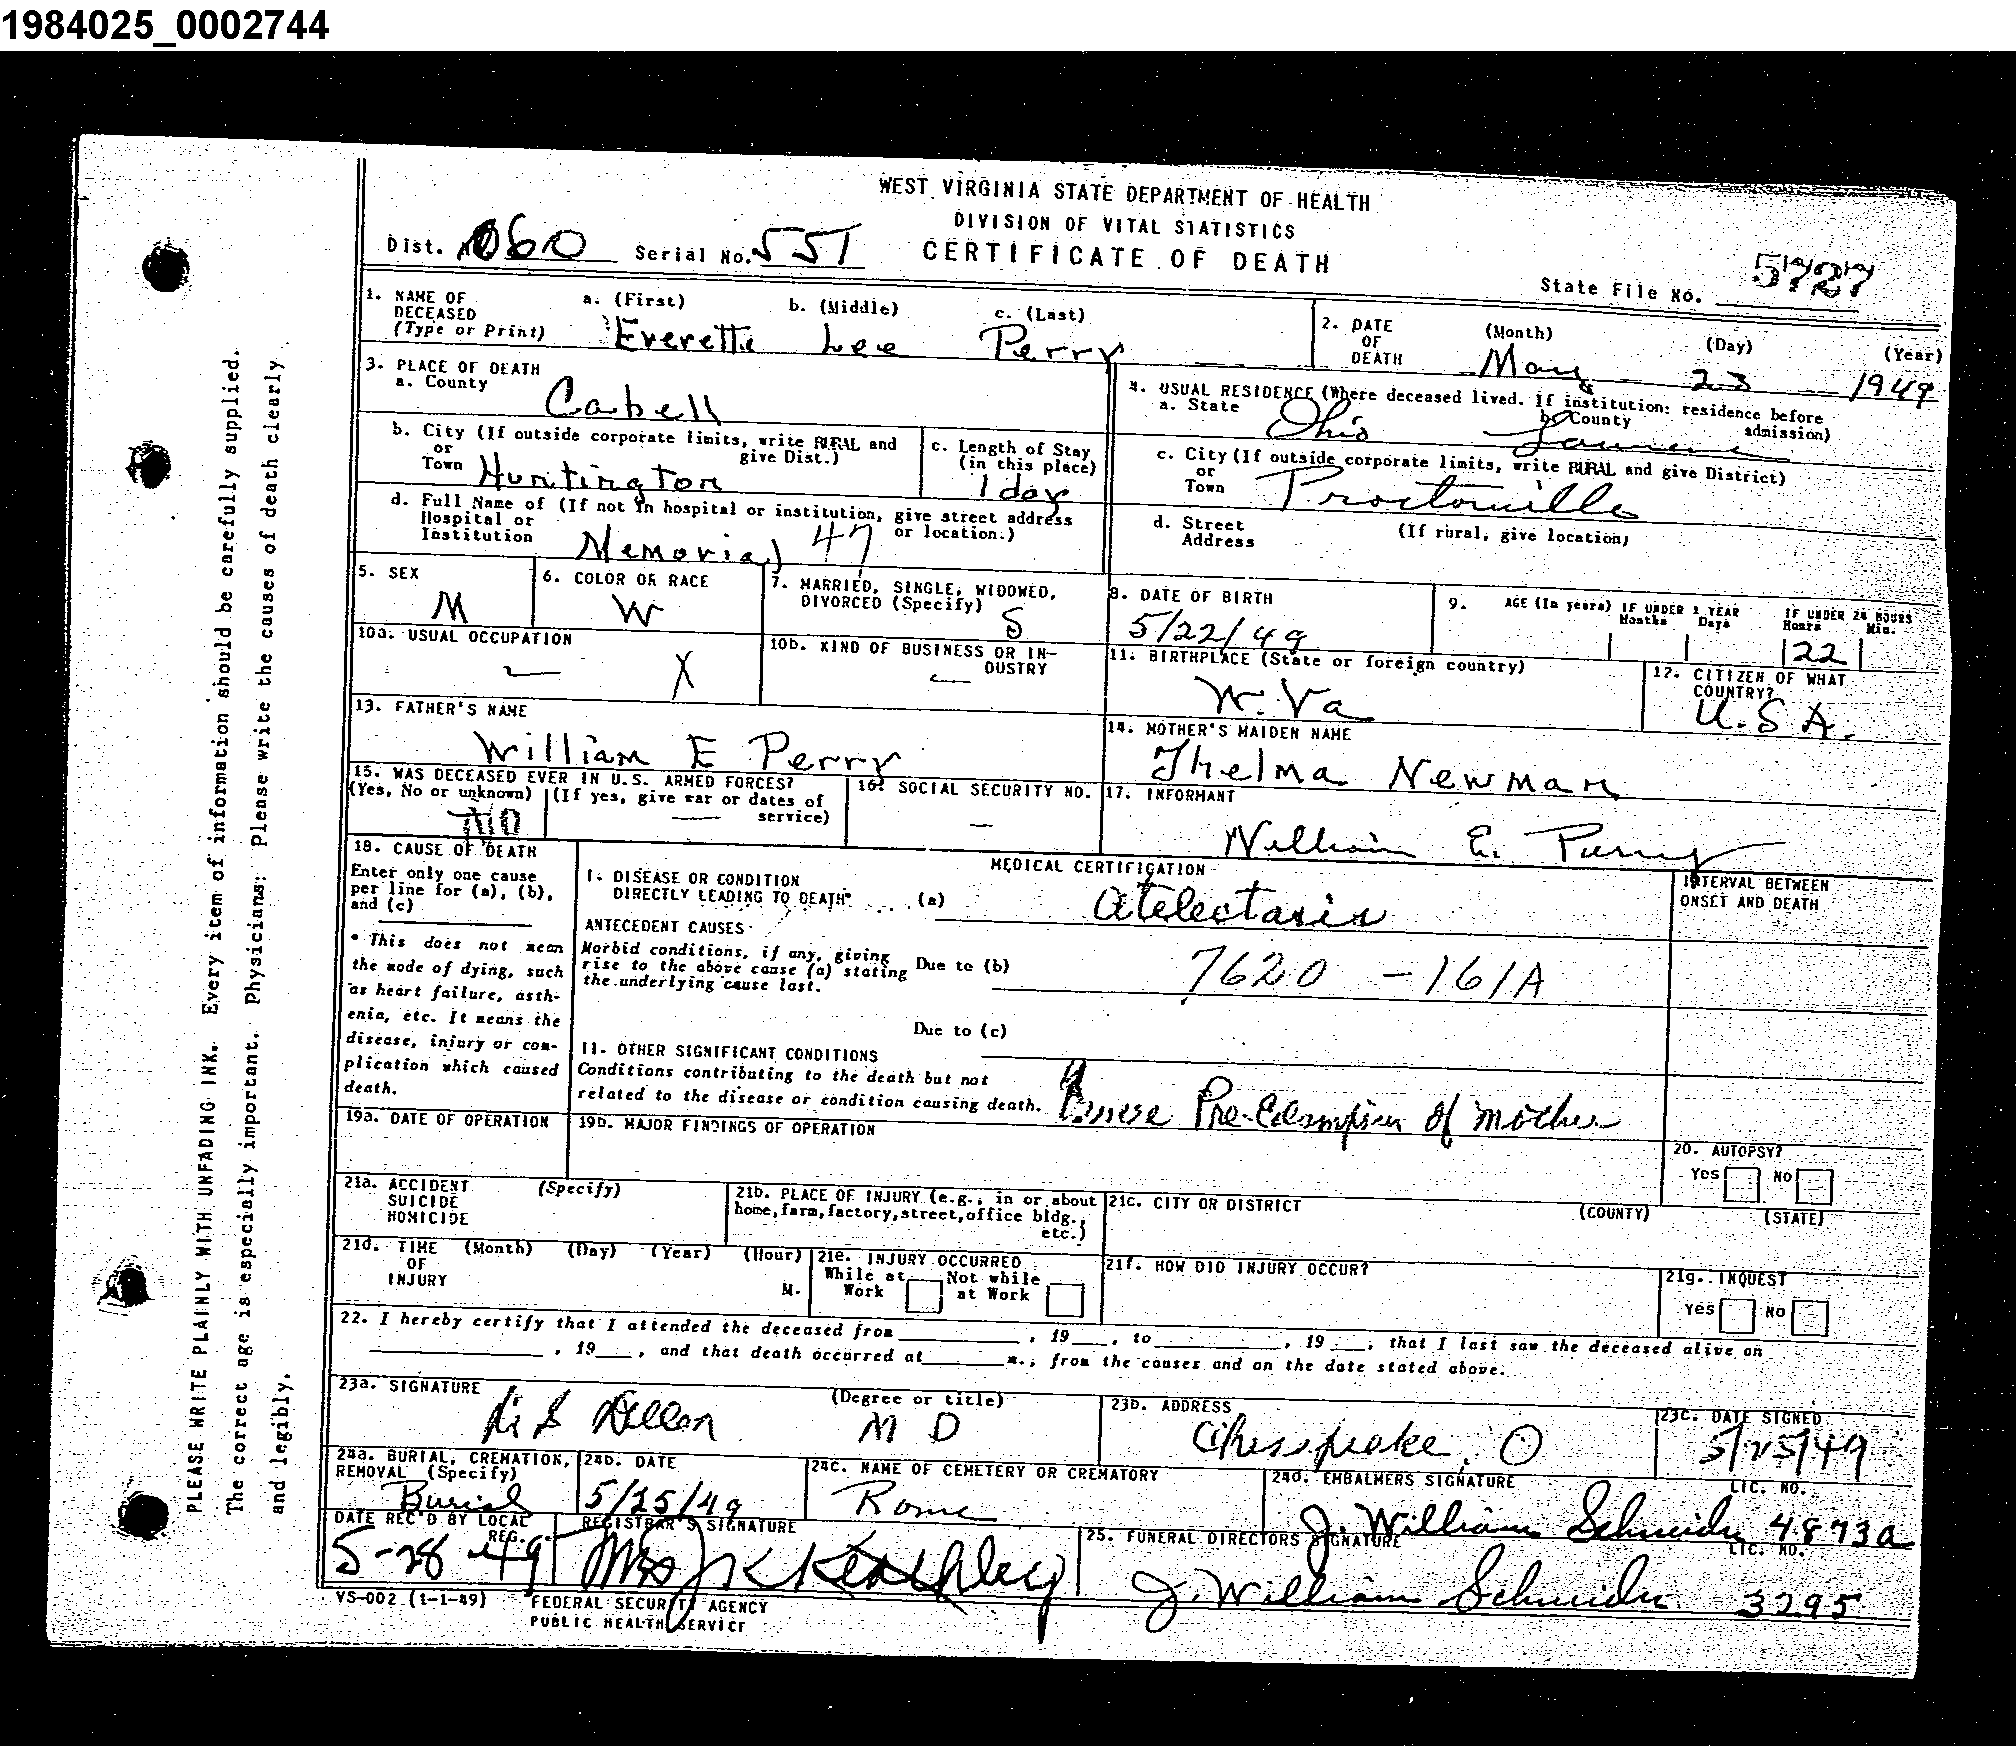 1984025_0002744
WEST VIRGINIA STATE DEPARTMENT OF HEALTH
DIVISION OF VITAL STATISTICS
CERTIFICATE OF DEATH
Dist. 060 Serial No. 551
State File No. 5727
1. NAME OF DECEASED (Type or Print) a. (First) b. (Middle) c. (Last)
Everette Lee Perry
2. DATE OF DEATH (Month) (Day) (Year)
May 23 1949
3. PLACE OF DEATH
a. County Cabell
b. City (If outside corporate limits, write RURAL and give Dist.)
or Town Huntington
c. Length of Stay (in this place)
1 day
d. Full Name of (If not in hospital or institution, give street address or location.)
Hospital or Institution Memorial 47
4. USUAL RESIDENCE (Where deceased lived. if institution: residence before admission)
a. State Ohio b. County
c. City (If outside corporate limits, write RURAL and give District)
or Town Proctorville
d. Street Address (If rural, give location)
5. SEX M
6. COLOR OR RACE W
7. MARRIED, SINGLE, WIDOWED, DIVORCED (Specify) S
8. DATE OF BIRTH 5/22/49
9. AGE (In years) IF UNDER 1 YEAR Months Days IF UNDER 24 HOURS Hours Min.
22
10a. USUAL OCCUPATION — X
10b. KIND OF BUSINESS OR INDUSTRY —
11. BIRTHPLACE (State or foreign country)
W. Va
12. CITIZEN OF WHAT COUNTRY?
U.S A.
13. FATHER'S NAME
William E Perry
14. MOTHER'S MAIDEN NAME
Thelma Newman
15. WAS DECEASED EVER IN U.S. ARMED FORCES?
(Yes, No or unknown) (If yes, give war or dates of service)
No —
16. SOCIAL SECURITY NO. —
17. INFORMANT
William E. Perry
18. CAUSE OF DEATH
Enter only one cause per line for (a), (b), and (c)
* This does not mean the mode of dying, such as heart failure, asthenia, etc. It means the disease, injury or complication which caused death.
MEDICAL CERTIFICATION
INTERVAL BETWEEN ONSET AND DEATH
I. DISEASE OR CONDITION DIRECTLY LEADING TO DEATH* .... (a) Atelectasis
ANTECEDENT CAUSES
Morbid conditions, if any, giving rise to the above cause (a) stating the underlying cause last.
Due to (b) 7620 - 161A
Due to (c)
II. OTHER SIGNIFICANT CONDITIONS
Conditions contributing to the death but not related to the disease or condition causing death.
Pre-Eclampsia of mother
19a. DATE OF OPERATION
19b. MAJOR FINDINGS OF OPERATION
20. AUTOPSY?
Yes No
21a. ACCIDENT SUICIDE HOMICIDE (Specify)
21b. PLACE OF INJURY (e.g., in or about home, farm, factory, street, office bldg., etc.)
21c. CITY OR DISTRICT (COUNTY) (STATE)
21d. TIME OF INJURY (Month) (Day) (Year) (Hour) M.
21e. INJURY OCCURRED
While at Work Not while at Work
21f. HOW DID INJURY OCCUR?
21g. INQUEST
Yes No
22. I hereby certify that I attended the deceased from , 19 , to , 19 , that I last saw the deceased alive on
, 19 , and that death occurred at m., from the causes and on the date stated above.
23a. SIGNATURE (Degree or title)
Dillon M D
23b. ADDRESS
Chesapeake, O
23c. DATE SIGNED
5/25/49
24a. BURIAL, CREMATION, REMOVAL (Specify)
Burial
24b. DATE
5/25/49
24c. NAME OF CEMETERY OR CREMATORY
Rome
24d. EMBALMERS SIGNATURE LIC. NO.
J. William Schneider 4873a
DATE REC'D BY LOCAL REG.
5-28-49
REGISTRAR'S SIGNATURE
25. FUNERAL DIRECTORS SIGNATURE LIC. NO.
J. William Schneider 3295
VS-002 (1-1-49) FEDERAL SECURITY AGENCY
PUBLIC HEALTH SERVICE
PLEASE WRITE PLAINLY WITH UNFADING INK. Every item of information should be carefully supplied.
The correct age is especially important. Physicians: Please write the causes of death clearly
and legibly.